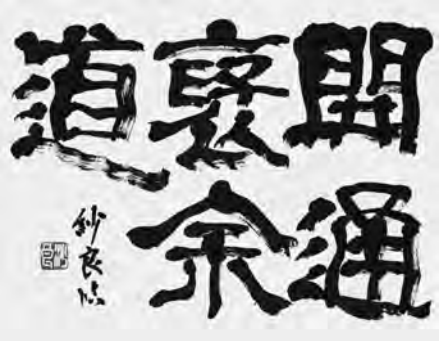 開通
褒余
道
紗良臨